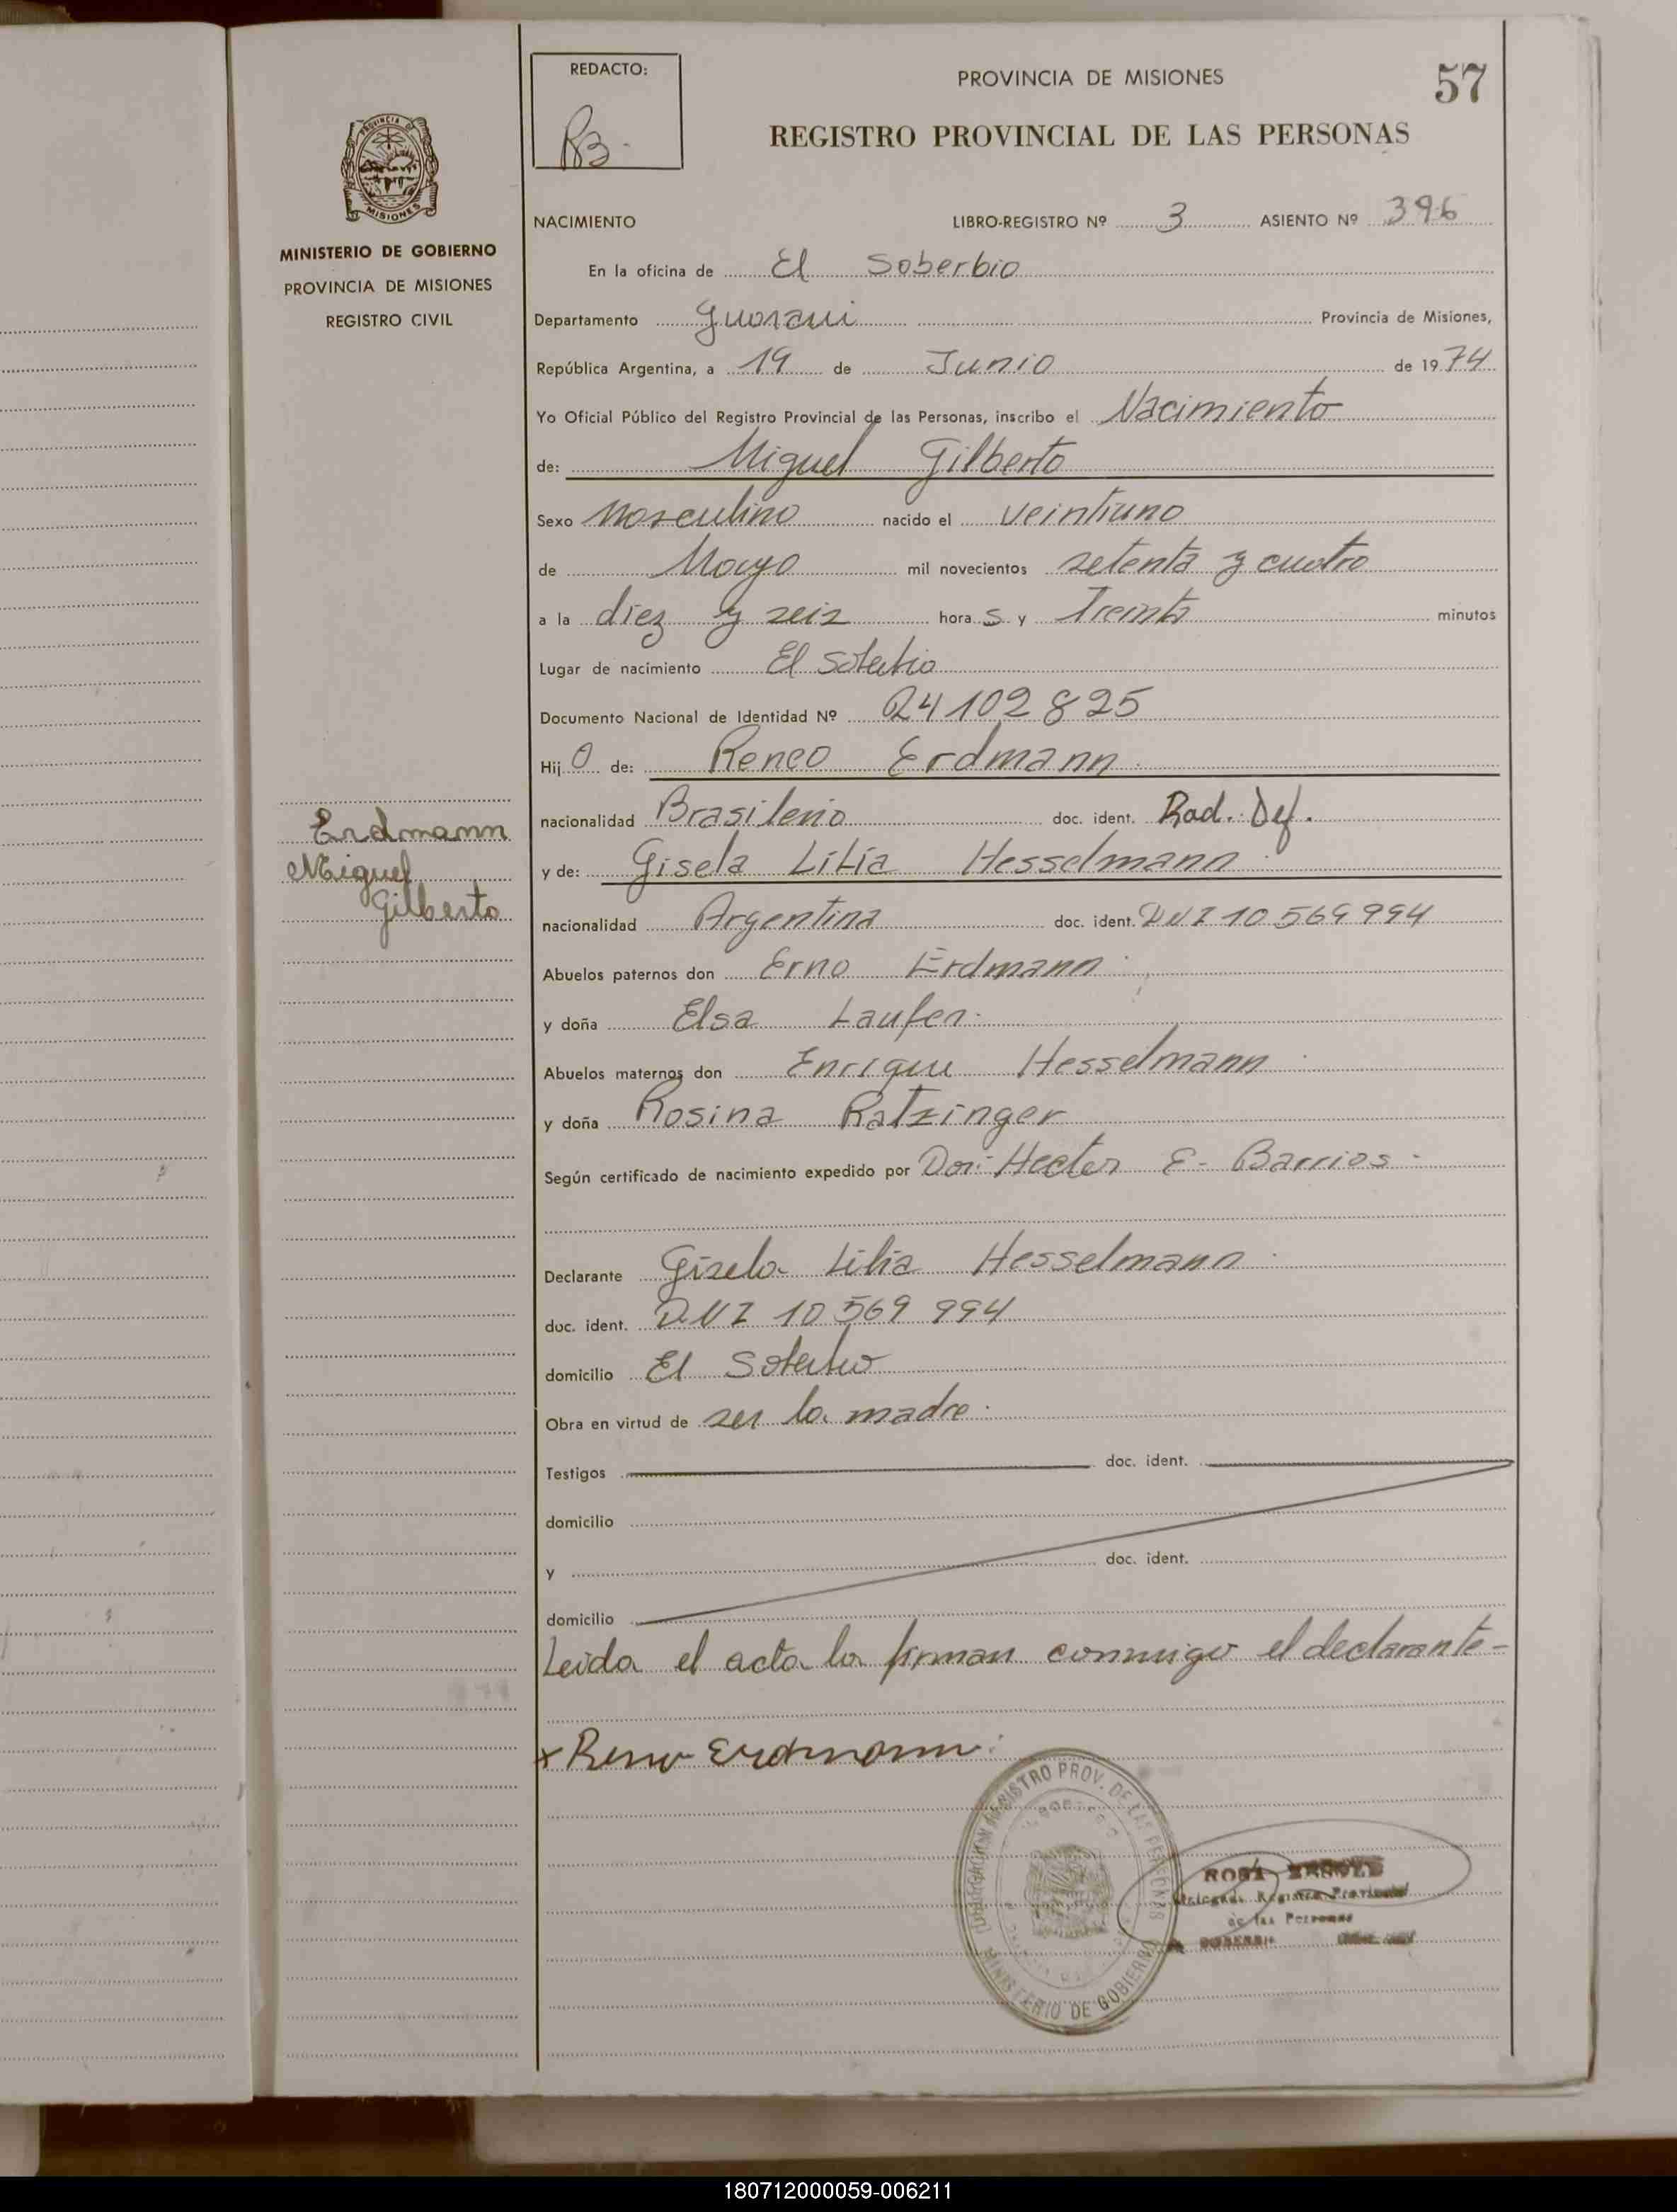 REDACTO:
RB.
PROVINCIA DE MISIONES
57
REGISTRO PROVINCIAL DE LAS PERSONAS
PROVINCIA DE
MISIONES
MINISTERIO DE GOBIERNO
PROVINCIA DE MISIONES
REGISTRO CIVIL
NACIMIENTO LIBRO-REGISTRO Nº 3 ASIENTO Nº 396
En la oficina de El Soberbio
Departamento Guarani Provincia de Misiones,
República Argentina, a 19 de Junio de 1974
Yo Oficial Público del Registro Provincial de las Personas, inscribo el Nacimiento
de: Miguel Gilberto
Sexo Masculino nacido el veintiuno
de Mayo mil novecientos setenta y cuatro
a la diez y seis hora s y Treinta minutos
Lugar de nacimiento El Soberbio
Documento Nacional de Identidad Nº 24102825
Hij o de: Reneo Erdmann
nacionalidad Brasileño doc. ident. Rad. Def.
Erdmann
Miguel
Gilberto
y de: Gisela Lilia Hesselmann
nacionalidad Argentina doc. ident. DNI 10 569 994
Abuelos paternos don Erno Erdmann
y doña Elsa Laufer
Abuelos maternos don Enrique Hesselmann
y doña Rosina Ratzinger
Según certificado de nacimiento expedido por Dor. Hector E. Barrios
Declarante Gisela Lilia Hesselmann
doc. ident. DNI 10 569 994
domicilio El Soberbio
Obra en virtud de ser la madre.
Testigos doc. ident.
domicilio
y doc. ident.
domicilio
Leida el acta la firman conmigo el declarante=
x Reno Erdmann
REGISTRO PROV. DE LAS PERSONAS
MINISTERIO DE GOBIERNO
ROSA
Registro Provincial
de las Personas
180712000059-006211